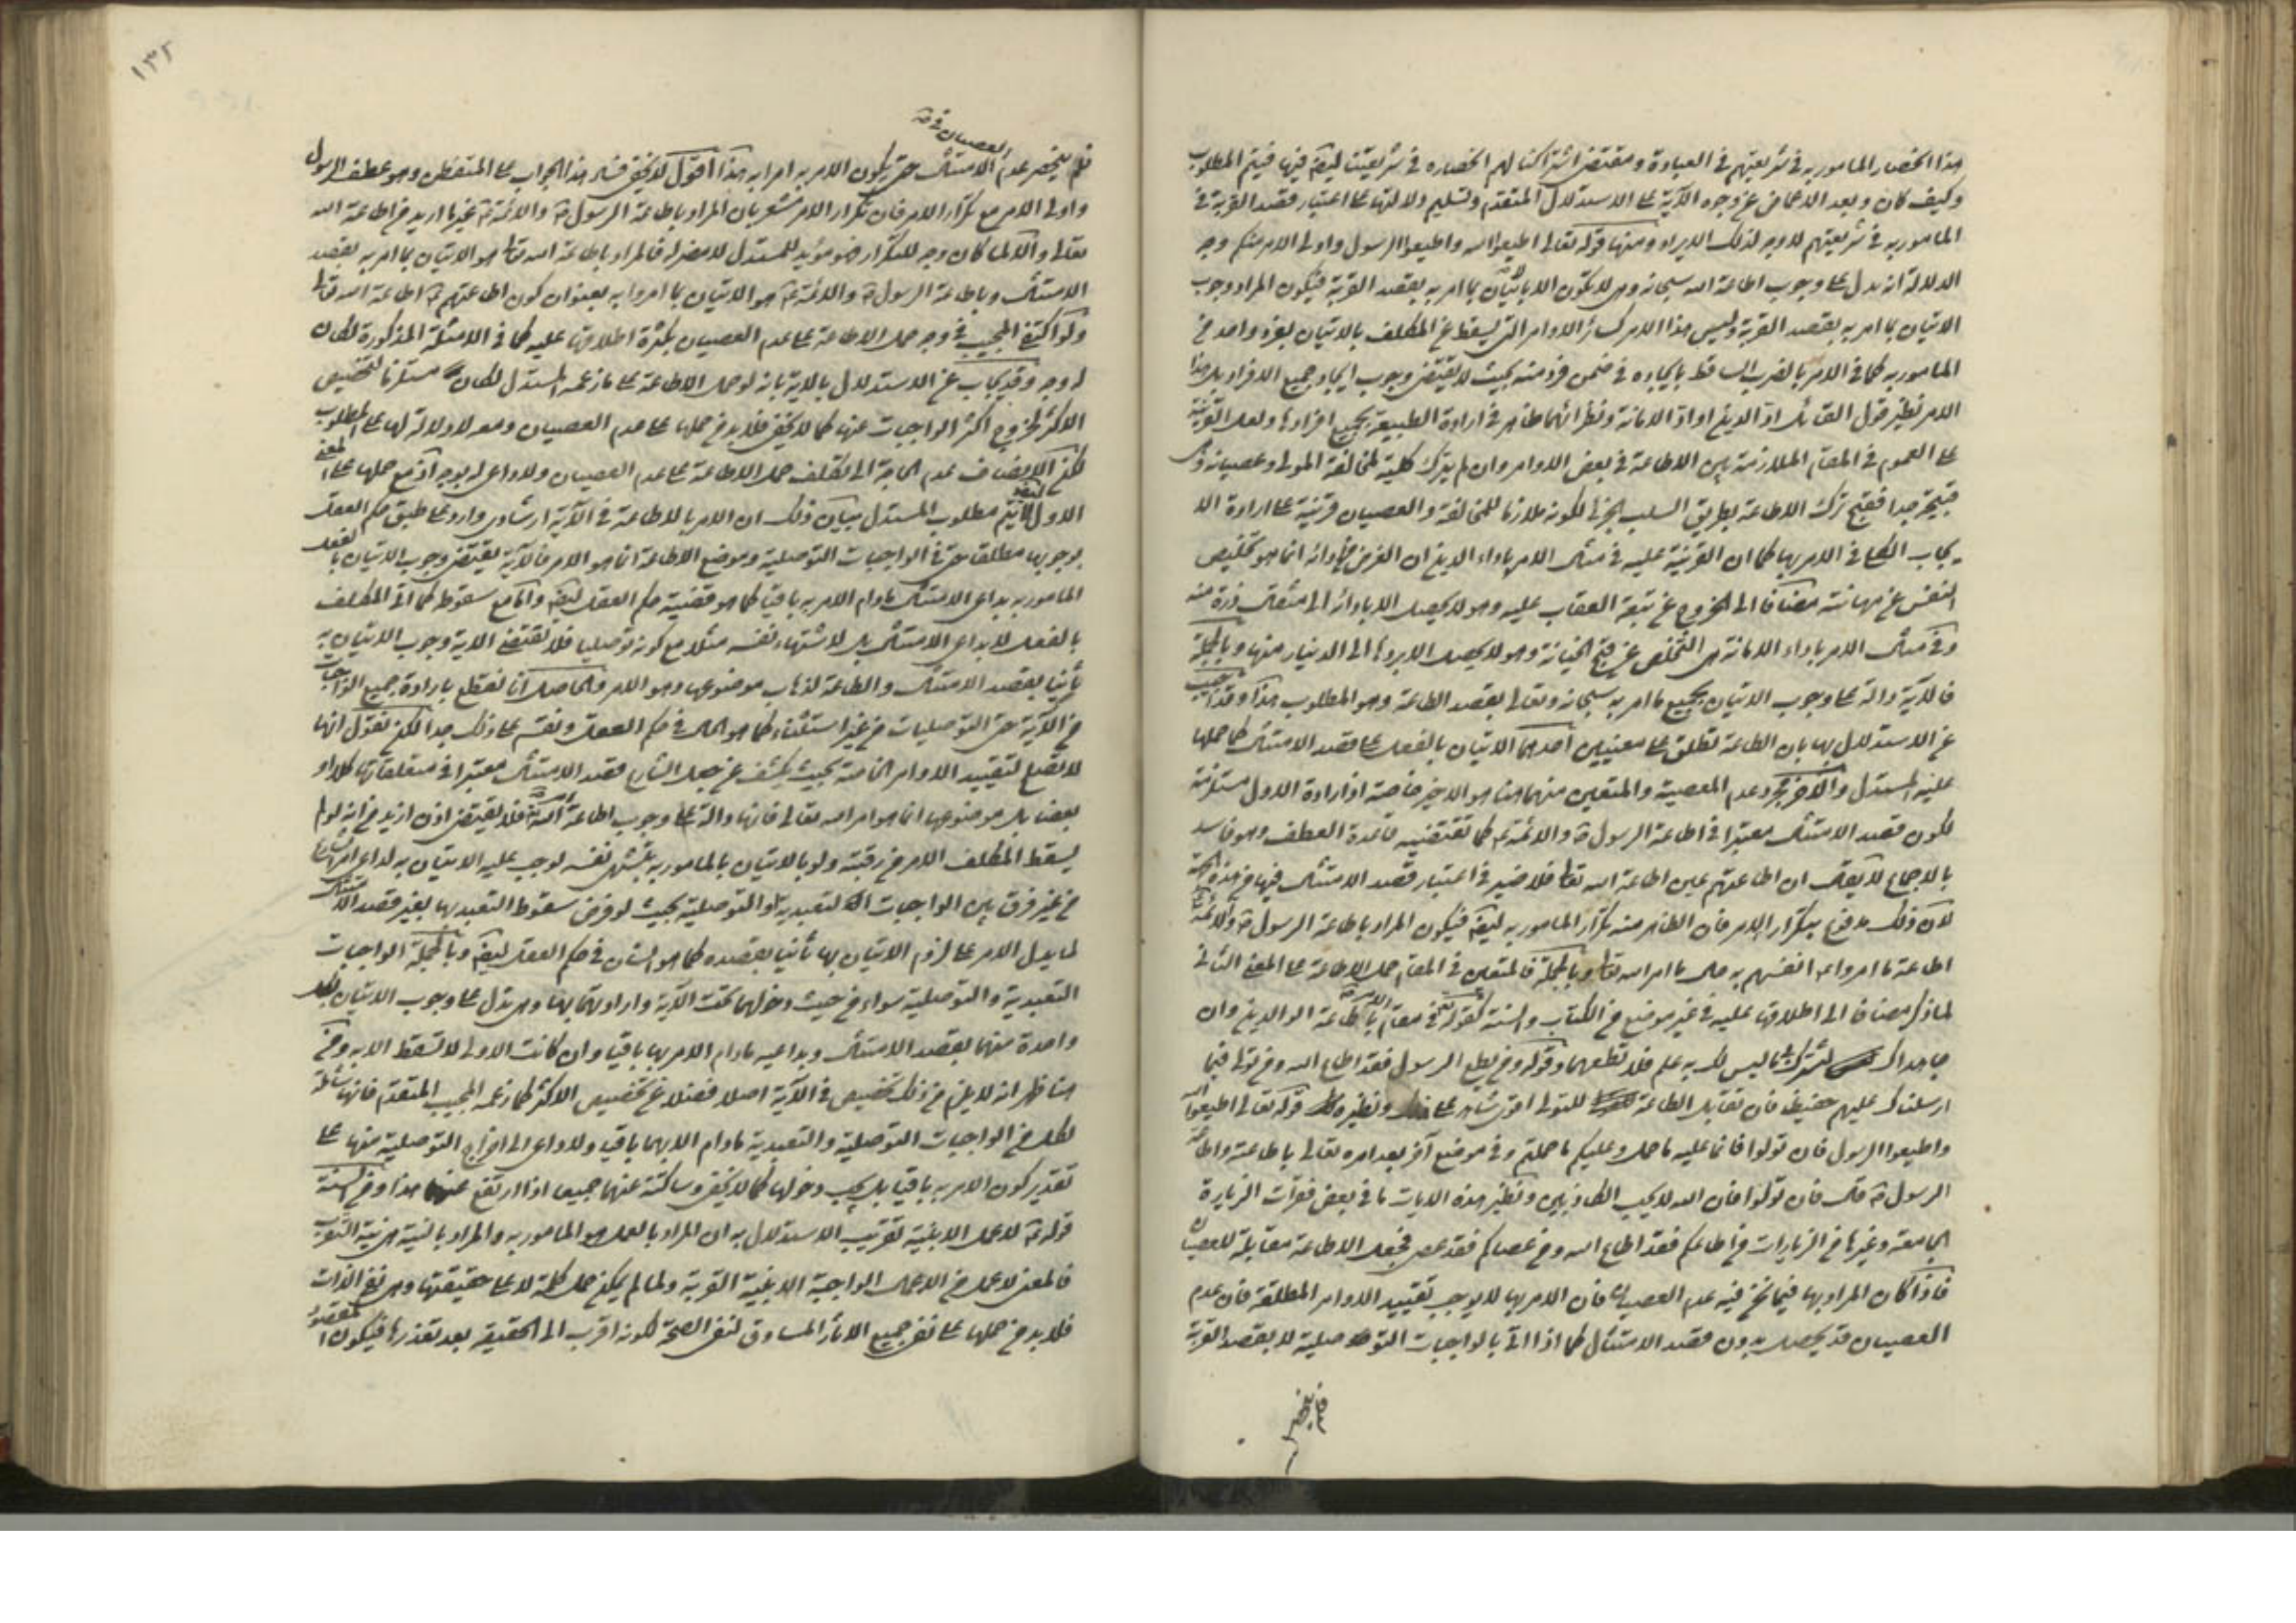 هذا انحصار المامور به في شريعتهم في العبادة ومقتضى اشتراكنا لهم انحصاره في شريعتنا ايضا فيتم المطلوب
وكيف كان وبعد الاغماض عن وجه الآية على الاستدلال المتقدم وتسليم دلالتها على اعتبار قصد القربة في
المامور به في شريعتهم لا وجه لذلك الايراد ومنها قوله تعالى اطيعوا الله واطيعوا الرسول واولى الامر منكم وجه
الدلالة انه يدل على وجوب اطاعة الله سبحانه وهي لا تكون الا باتيان ما امر به بقصد القربة فيكون المراد وجوب
الاتيان بما امر به بقصد القربة وليس هذا الامر كسائر الاوامر التي يسقط عن المكلف بالاتيان بفرد واحد من
المامور به كما في الامر بالضرب الساقط بايجاده في ضمن فرد منه بحيث لا يقتضى وجوب ايجاد جميع الافراد بل هذا
الامر نظير قول القائل ادّ الدين او ادّ الامانة ونظائرهما ظاهر في ارادة الطبيعة بجميع افرادها ولعل القرينة
على العموم في المقام الملازمة بين الاطاعة في بعض الاوامر وان لم يترك كلية لمخالفة المولى وعصيانه
قبيحة جدا فقبح ترك الاطاعة بطريق السلب الجزئي لكونه ملازما للمخالفة والعصيان قرينة على ارادة الا
يجاب الكلي في الامر بها كما ان القرينة عليه في مثل الامر باداء الدين ان الغرض من ادائه انما هو تخليص
النفس عن مهانته مضافا الى الخروج عن تبعة العقاب عليه وهو لا يحصل الا بادائه الى مثقال ذرة منه
وفي مثل الامر باداء الامانة هي التخلص عن قبح الخيانة وهو لا يحصل الا بردها الى الدينار منها وبالجملة
فالآية دالة على وجوب الاتيان بجميع ما امر به سبحانه وتعالى بقصد الطاعة وهو المطلوب هذا وقد اجيب
عن الاستدلال بها بان الطاعة تطلق على معنيين احدهما الاتيان بالفعل على قصد الامتثال كما حملها
عليه المستدل والآخر مجرد عدم المعصية والمتعين منهما هنا هو الاخير خاصة اذ ارادة الاول مستلزمة
لكون قصد الامتثال معتبرا في اطاعة الرسول ص والائمة ع كما تقتضيه قاعدة العطف وهو فاسد
بالاجماع لا يقال ان اطاعتهم عين اطاعة الله تعالى فلا ضير في اعتبار قصد الامتثال فيها من هذه الجهة
لان ذلك مدفوع بتكرار الامر فان الظاهر منه تكرار المامور به ايضا فيكون المراد باطاعة الرسول ص والائمة
اطاعة ما امروا هم انفسهم به لا ما امر الله تعالى وبالجملة فالمتعين في المقام حمل الاطاعة على المعنى الثاني
لما ذكر مضافا الى اطلاقها عليه في غير موضع من الكتاب والسنة كقوله تعالى في مقام اطاعة الوالدين وان
جاهداك لتشرك بي ما ليس لك به علم فلا تطعهما وقوله ومن يطع الرسول فقد اطاع الله ومن تولى فما
ارسلناك عليهم حفيظا فان تقابل الطاعة للتولى اقوى شاهد على ذلك ونظيره قوله تعالى اطيعوا الله
واطيعوا الرسول فان تولوا فانما عليه ما حمل وعليكم ما حملتم وفي موضع آخر بعد امره تعالى باطاعته واطاعة
الرسول ص قال فان تولوا فان الله لا يحب الكافرين ونظير هذه الايات ما في بعض فقرات الزيارة
الجامعة وغيرها من الزيارات من اطاعكم فقد اطاع الله ومن عصاكم فقد عصى الله فجعل الاطاعة مقابلة للعصيان
فاذا كان المراد بها فيما نحن فيه عدم العصيان فان الامر بها لا يوجب تقييد الاوامر المطلقة فان عدم
العصيان قد يحصل بدون قصد الامتثال كما اذا اتى بالواجبات التوصلية لا بقصد القربة
فلم ينحصر
١٣٢
العصيان في
فلم ينحصر عدم الامتثال حتى يكون الامر به امرا به هذا اقول لا يخفى فساد هذا الجواب على المتفطن وهو عطف الرسول
واولى الامر مع تكرار الامر فان تكرار الامر مشعر بان المراد باطاعة الرسول ص والائمة ع غير ما اريد من اطاعة الله
تعالى والا لما كان وجه للتكرار فهو مؤيد للمستدل لا مضر له فالمراد باطاعة الله تعالى هو الاتيان بما امر به بقصد
الامتثال وباطاعة الرسول ص والائمة ع هو الاتيان بما امروا به بعنوان كون اطاعتهم ع اطاعة الله تعالى
ولو اكتفى المجيب في وجه حمل الاطاعة على عدم العصيان بكثرة اطلاقها عليه كما في الامثلة المذكورة لكان
له وجه وقد يجاب عن الاستدلال بالاية بانه لو حمل الاطاعة على ما زعمه المستدل لكان مستلزما لتخصيص
الاكثر لخروج اكثر الواجبات عنها كما لا يخفى فلا بد من حملها على عدم العصيان ومعه لا دلالة لها على المطلوب
لكن الانصاف عدم الحاجة الى تكلف حمل الاطاعة على عدم العصيان ولا داعي له بوجه آخر مع حملها على المعنى
الاول لا يتم مطلوب المستدل بيان ذلك ان الامر بالاطاعة في الآية ارشادى وارد على طبق حكم العقل
بوجوبها مطلقا حتى في الواجبات التوصلية وموضع الاطاعة انما هو الامر فالآية يقتضى وجوب الاتيان بالفعل
المامور به بداعى الامتثال مادام الامر به باقيا كما هو قضية حكم العقل ايضا واما مع سقوطه كما اذا اتى المكلف
بالفعل لا بداعى الامتثال بل لاشتهاء نفسه مثلا مع كونه توصليا فلا تقتضى الاية وجوب الاتيان به
ثانيا بقصد الامتثال والطاعة لذهاب موضوعها وهو الامر والحاصل انا نقطع بارادة جميع الواجبات
من الآية حتى التوصليات من غير استثناء كما هو الحال في حكم العقل ونقسم على ذلك جدا لكن نقول انها
لا تصلح لتقييد الاوامر الخاصة بحيث يكشف عن جعل الشارع قصد الامتثال معتبرا في متعلقاتها كلا او
بعضا بل موضوعها انما هو امر الله تعالى فانها دالة على وجوب اطاعة امر الله فلا يقتضى اذن ازيد من انه لو لم
يسقط المكلف الامر من رقبته ولو بالاتيان بالمامور به بتشهى نفسه لوجب عليه الاتيان به لداعى امر الشارع
من غير فرق بين الواجبات التعبدية والتوصلية بحيث لو فرض سقوط التعبد بها بغير قصد الامتثال
لما يدل الامر على لزوم الاتيان بها ثانيا بقصده كما هو الشان في حكم العقل ايضا وبالجملة الواجبات
التعبدية والتوصلية سواء من حيث دخولهما تحت الآية وارادتهما بها وهي تدل على وجوب الاتيان بكل
واحدة منهما بقصد الامتثال وبداعيه مادام الامر بها باقيا وان كانت الاولى لا تسقط الا به ومن
هنا ظهر انه لا يلزم من ذلك تخصيص في الآية اصلا فضلا عن تخصيص الاكثر كما زعمه المجيب المتقدم فانها شاملة
لكل من الواجبات التوصلية والتعبدية مادام الامر بهما باقيا ولا داعى الى اخراج التوصلية منها على
تقدير كون الامر به باقيا بل يجب دخولها كما لا يخفى وساكتة عنهما جميعا اذا ارتفع عنهما هذا ومن السنة
قوله ع لا عمل الا بنية تقريب الاستدلال به ان المراد بالعمل هو المامور به والمراد بالنية هي نية التقرب
فالمعنى لا عمل من الاعمال الواجبة الا بنية القربة ولما لم يمكن حمل كلمة لا على حقيقتها وهي نفى الذات
فلا بد من حملها على نفى جميع الاثار المساوق لنفى الصحة لكونه اقرب الى الحقيقة بعد تعذرها فيكون المقصود